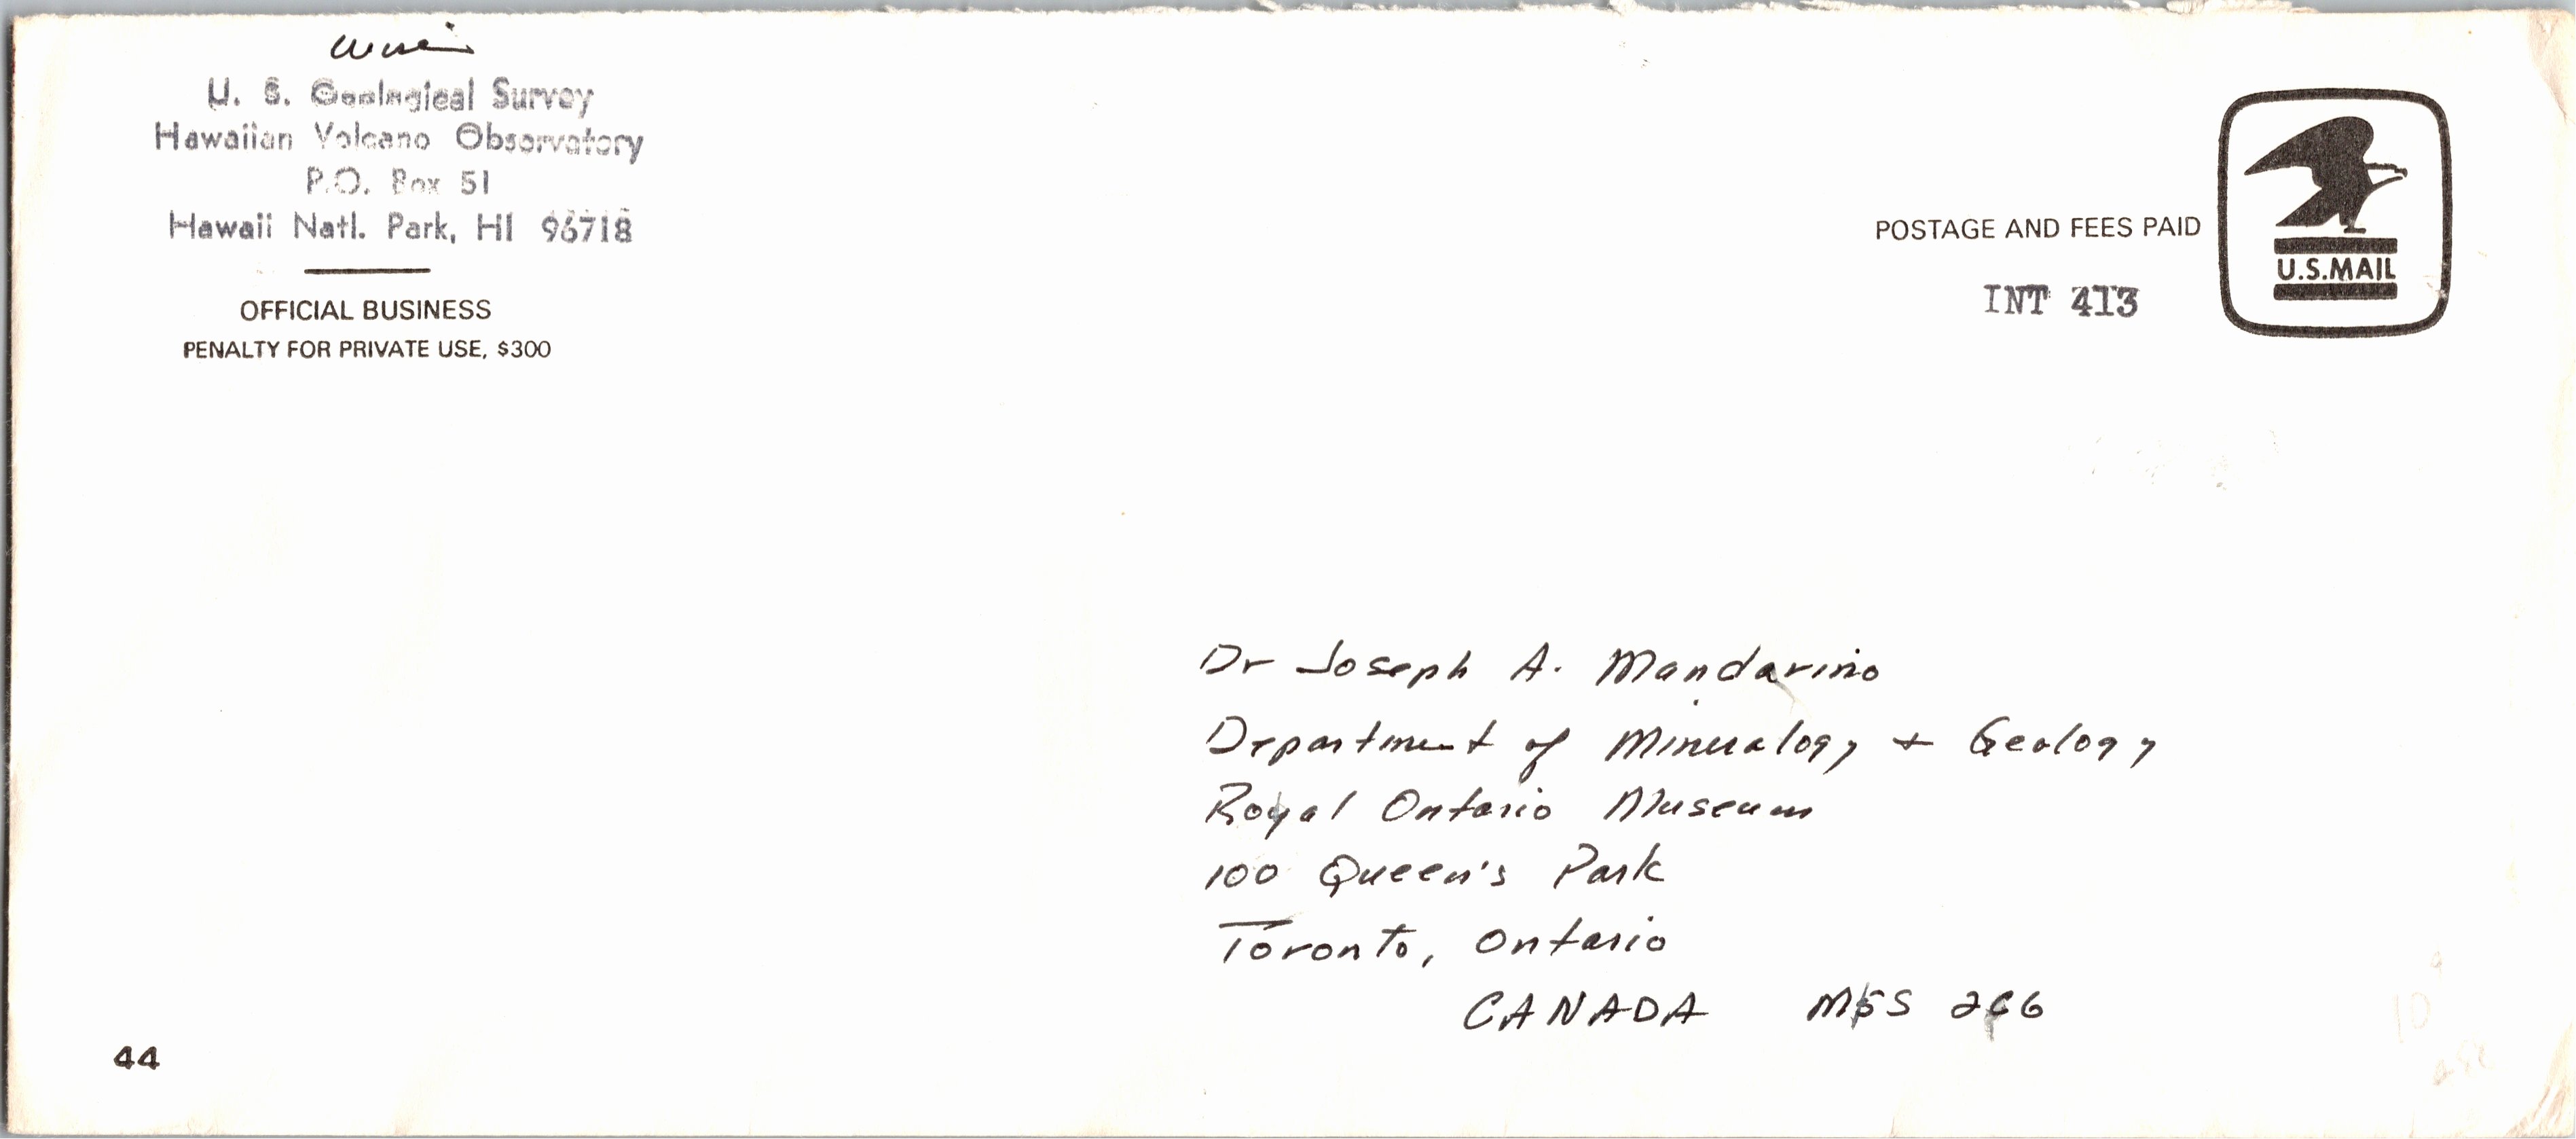 U. S. Geological Survey
Hawaiian Volcano Observatory
P.O. Box 51
Hawaii Natl. Park, HI 96718
OFFICIAL BUSINESS
PENALTY FOR PRIVATE USE, $300
POSTAGE AND FEES PAID
INT 413
U.S.MAIL
Dr Joseph A. Mandarino
Department of Mineralogy + Geology
Royal Ontario Museum
100 Queen's Park
Toronto, Ontario
CANADA M5S 2C6
44